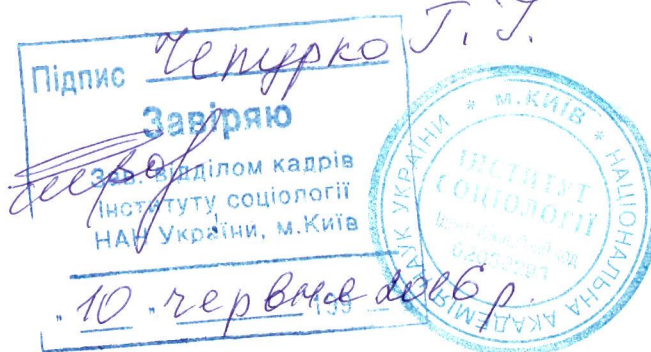 Підпис Чепурко Г. І.
Завіряю
Зав. відділом кадрів
Інституту соціології
НАН України, м.Київ
"10" червня 2016 р.
* м. КИЇВ * НАЦІОНАЛЬНА АКАДЕМІЯ НАУК УКРАЇНИ
ІНСТИТУТ
СОЦІОЛОГІЇ